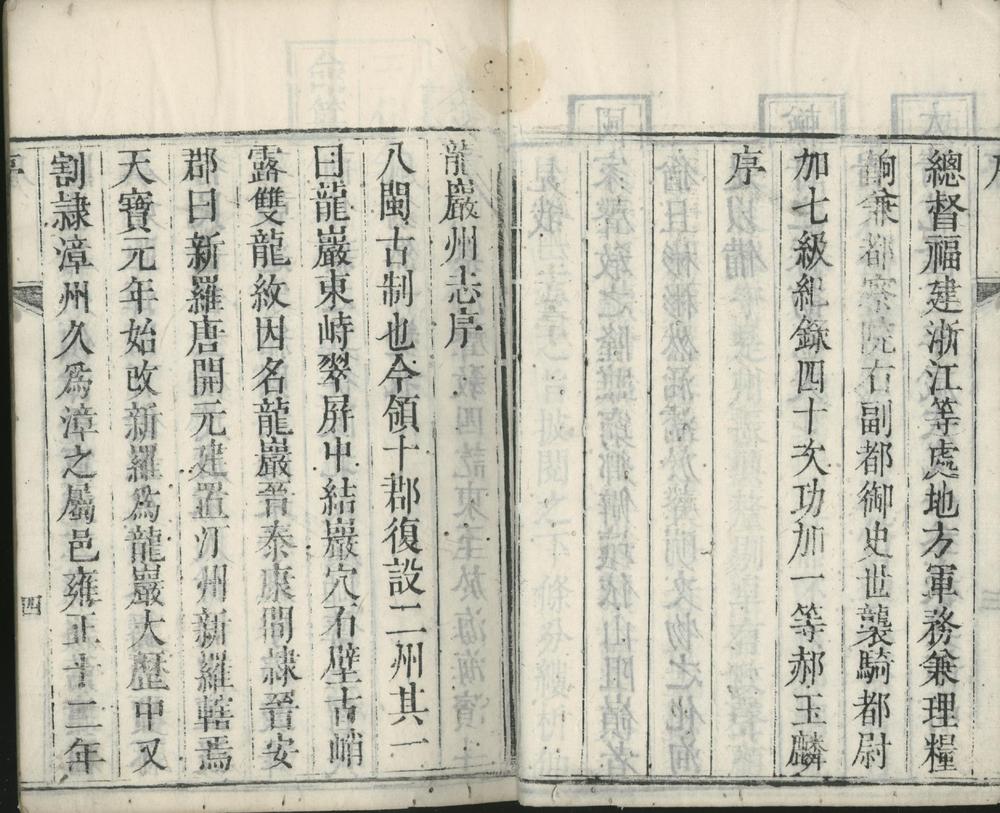 總督福建浙江等處地方軍務兼理糧
餉兼都察院右副都御史世襲騎都尉
加七級紀錄四十次功加一等郝玉麟
序
龍巖州志序
八閩古制也今領十郡復設二州其一
曰龍巖東峙翠屏中結巖穴石壁古峭
露雙龍紋因名龍巖晉泰康間隸晉安
郡曰新羅唐開元建置汀州新羅轄焉
天寶元年始改新羅爲龍巖大歷中又
割隷漳州久爲漳之屬邑雍正十二年
序
四